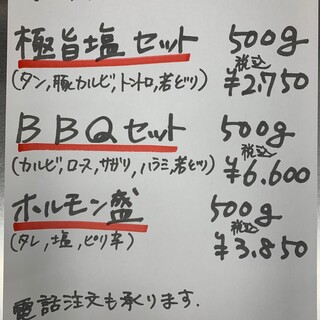 極旨塩セット 500g
(タン,豚カルビ,トントロ,若どり) 税込 ¥2.750
BBQセット 500g
(カルビ,ロース,サガリ,ハラミ,若どり) 税込 ¥6.600
ホルモン盛 500g
(タレ,塩,ピリ辛) 税込 ¥3.850
電話注文も承ります.